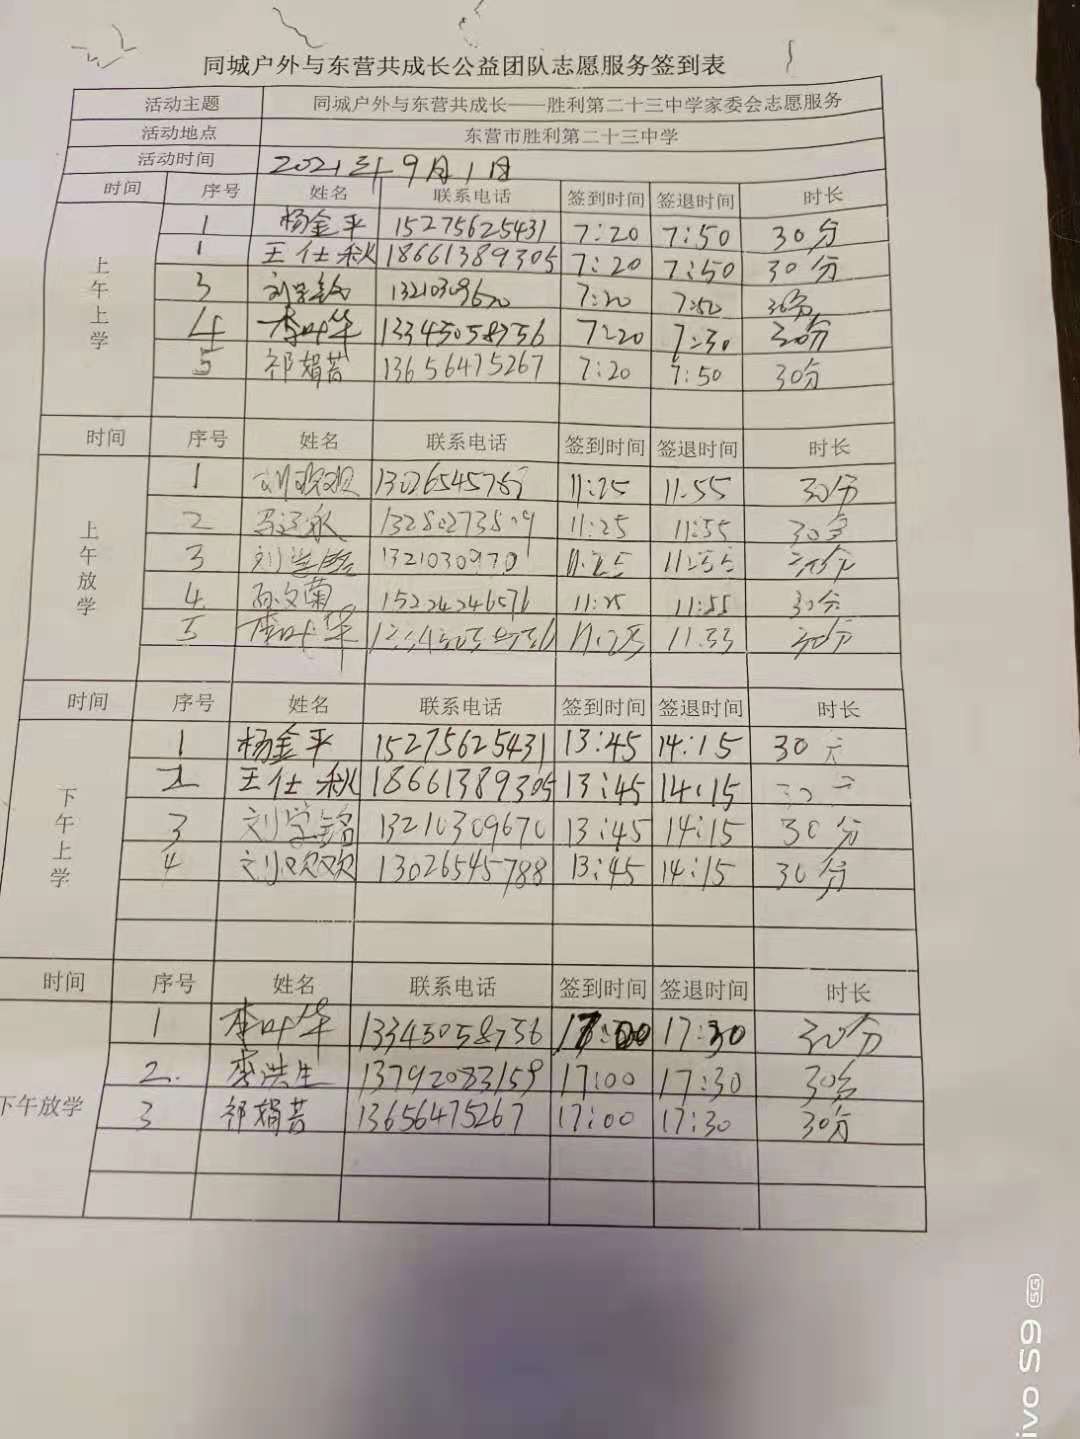 同城户外与东营共成长公益团队志愿服务签到表
活动主题 同城户外与东营共成长——胜利第二十三中学家委会志愿服务
活动地点 东营市胜利第二十三中学
活动时间 2021年9月1日
时间 序号 姓名 联系电话 签到时间 签退时间 时长
上午上学
1 杨金平 15275625431 7:20 7:50 30分
1 王仕秋 18661389305 7:20 7:50 30分
3 刘学铭 13210309670 7:20 7:50 30分
4 李叶华 13345058756 7:20 7:30 30分
5 祁娟芸 13656475267 7:20 7:50 30分
时间 序号 姓名 联系电话 签到时间 签退时间 时长
上午放学
1 刘欢欢 11:25 11:55 30分
2 11:25 11:55 30分
3 刘学铭 1321030970 11:25 11:55 30分
4 孙文菊 11:25 11:55 30分
5 李叶华 11:25 11:55 30分
时间 序号 姓名 联系电话 签到时间 签退时间 时长
下午上学
1 杨金平 15275625431 13:45 14:15 30
2 王仕秋 18661389305 13:45 14:15
3 刘学铭 13210309670 13:45 14:15 30分
4 刘欢欢 13026545788 13:45 14:15 30分
时间 序号 姓名 联系电话 签到时间 签退时间 时长
下午放学
1 李叶华 13345058756 17:00 17:30 30分
2. 李洪生 13792083159 17:00 17:30 30分
3 祁娟芸 13656475267 17:00 17:30 30分
ivo S9 5G